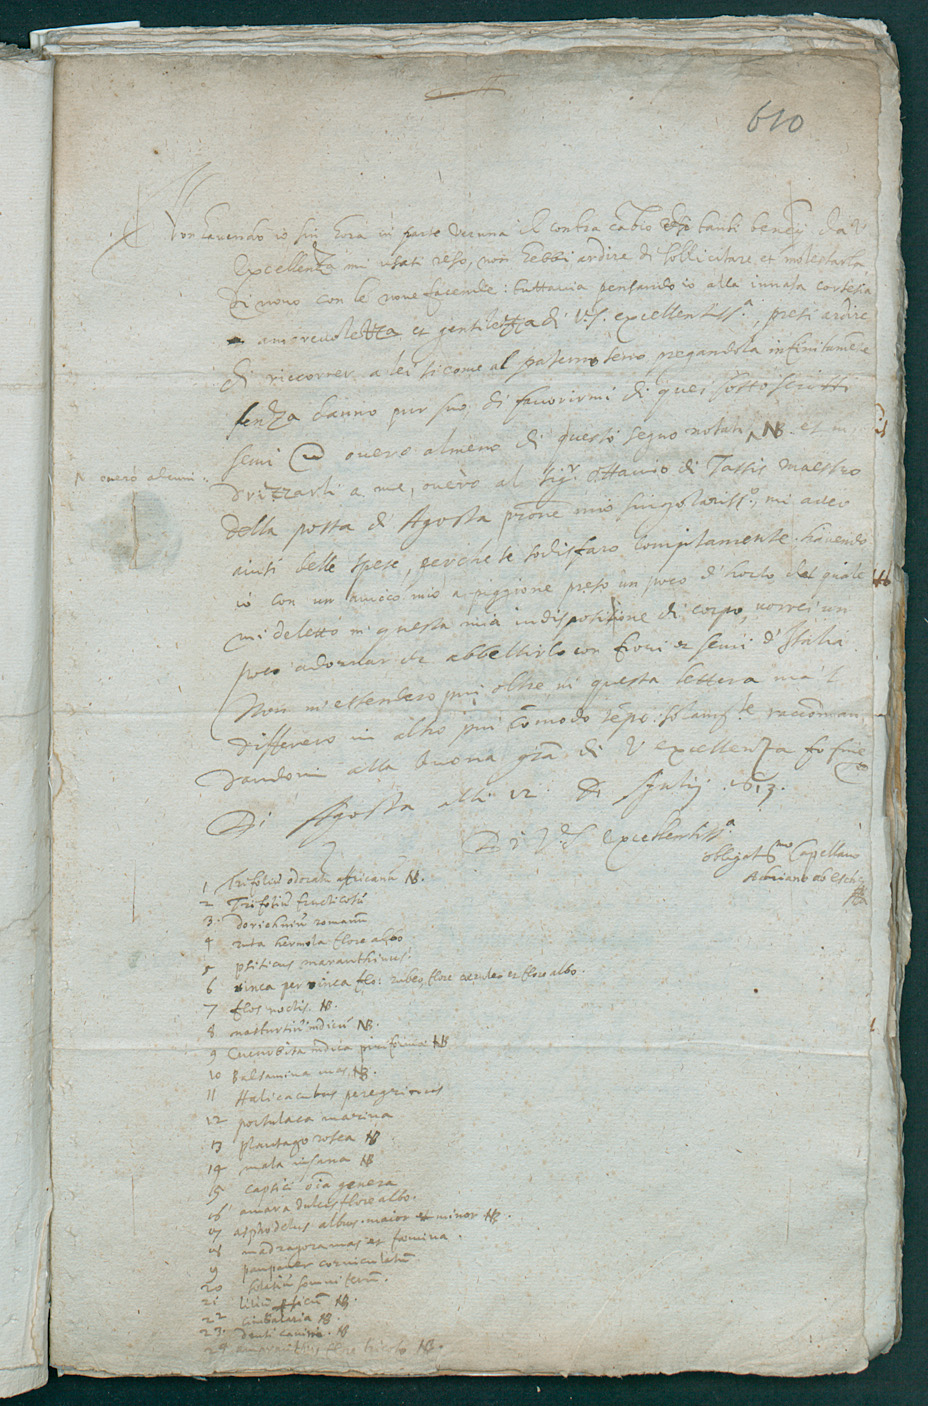 610
Non havendo io sin hora in parte veruna il contra cabio di tanti beneficij da V.
Excellenza mi usati reso, non hebbi ardire di sollicitare, et molestarla
di novo con le nove facende: tuttavia pensando io alla innata cortesia
amorevolezza et gentilezza di V. S. excellentiss.a, presi ardire
di riccorrer a lei sicome al paterno seno, pregandola infinitamēte
senza danno pur suo, di favorirmi di quei sottoscritti
semi overo almeno di questo segno notati NB. et in
drizzarli a me, overo al Sig.r Ottavio di Tassis Maestro
N overo alcuni
della posta di Agosta prōne mio singolariss.o, mi
avisi delle spese, perche le sodisfaro compitamente. havendo
io con un amico mio a piggione preso un poco d'horto, del quale
mi deletto in questa mia indispositione di corpo, vorrei un
poco adornar et abbellirlo con fiori et semi d'Italia.
Non mi estendero piu oltre in questa lettera ma l
differero in altro piu cōmodo tēpo. raccoman
dandomi alla buona grā di V excellenza fo fine
Di Agosta alli 12 di Julij 1613.
Di V. S. Excellentiss.a
obligatissmo Capellano
Adriano
1 Trifoliū odoratū africanū NB.
2 Trifoliū fructicosū
3 doricniū romanū
4 ruta flore albo
5 maranthinus.
6 vinca per vinca flo: rubeo, flore ceruleo et flore albo.
7 flos noctis. NB.
8 nasturtiū indicū NB.
9 Cucurbita indica piriformis NB
10 Balsamina mas NB.
11 Halicacabus peregrinus
12 portulaca marina
13 plantago rosea NB
14 mala insana NB
15 capsici oīa genera
16 amara dulcis flore albo.
17 asphodelus albus. maior et minor NB.
18 mādragora mas et fœmina.
19 papaver corniculatū
20 solatiū somniferū.
21 liliū NB.
22 cimbalaria NB.
23. denti canino. NB
24 amaranthus flore tricolo NB.